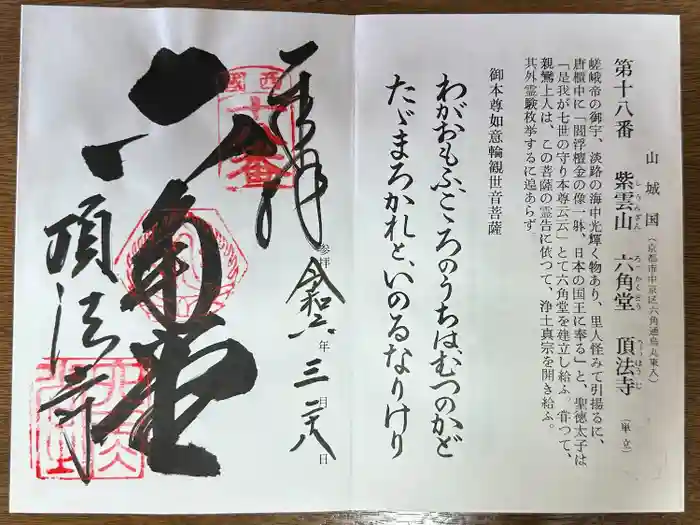 第十八番 紫雲山 六角堂 頂法寺 (単立)
しうんざん ろっかくどう ちょうほうじ
山城国 (京都市中京区六角通烏丸東入)
嵯峨帝の御宇、淡路の海中光輝く物あり、里人怪みて引揚るに、
唐櫃中に「閻浮檀金の像一躰、日本の国王に奉る」と、聖徳太子は
「是我が七世の守り本尊云云」とて六角堂を建立し給ふ。昔つて、
親鸞上人は、この菩薩の霊告に依つて、浄土真宗を開き給ふ。
其外霊験枚挙するに遑あらず。
御本尊如意輪観世音菩薩
わがおもふ、こころのうちは、むつのかど
たゞまろかれと、いのるなりけり
奉拝
参拝 令和六年 三月 二八日
西國
十八番
六角堂
頂法寺